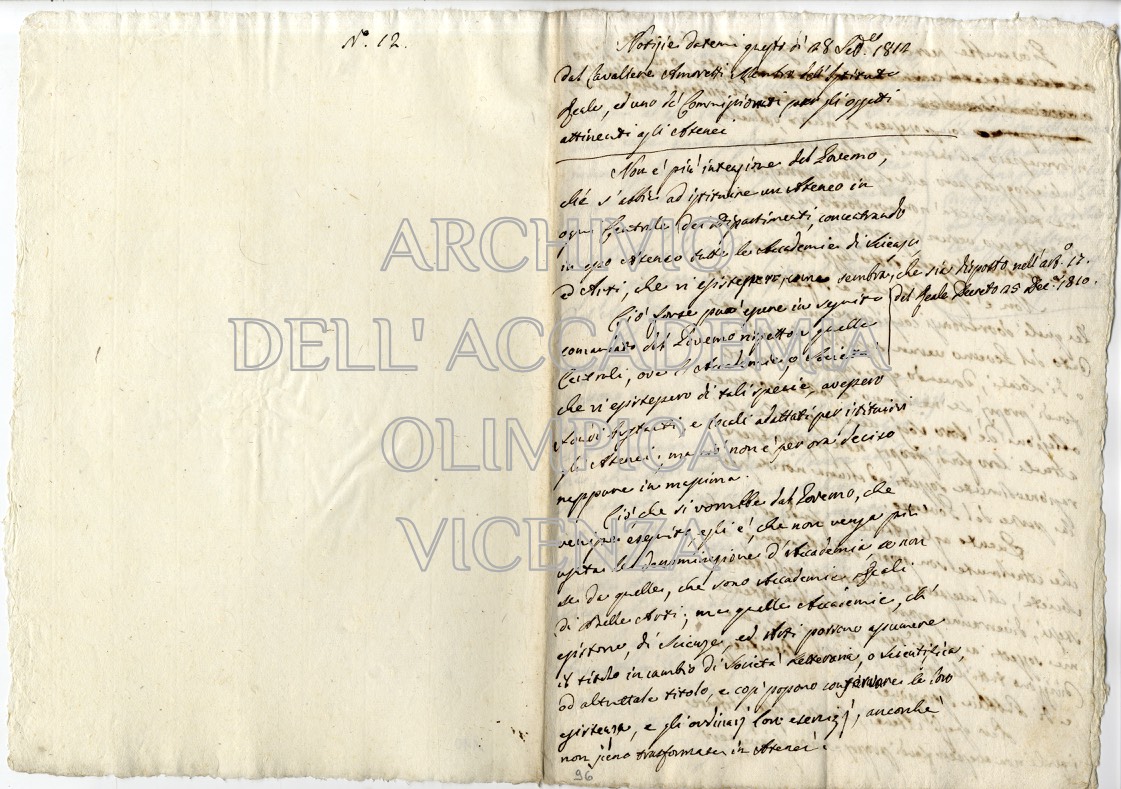 N.° 12.
Notizie datemi questo dì 28 Sett.e 1812
dal Cavaliere Amoretti Membro dell'Istituto
Reale, ed uno de' Commissionati per gli oggetti
attinenti agli Atenei
Non è più intenzione del Governo,
che s'abbia ad istituire un Ateneo in
ogni Centrale dei Dipartimenti, concentrando
in esso Ateneo tutte le Accademie di Scienze,
ed Arti, che vi esistessero, come sembra, che sia disposto nell'art.° 17.
del Reale Decreto 25 Dec.e 1810.
Ciò forse può essere in seguito
comandato dal Governo rispetto a quelle
Centrali, ove le Accademie, o Società
che vi esistessero di tali specie, avessero
fondi bastanti, e locali adattati per istituirvi
gli Atenei; ma ciò non è per ora deciso
neppure in massima.
Ciò che si vorrebbe dal Governo, che
venisse eseguito, egli è, che non venga più
usata la denominazione d'Accademia se non
se da quelle, che sono Accademie Reali
di Belle Arti; ma quelle Accademie, ch'
esistono, di Scienze, ed Arti possono assumere
il titolo in cambio di Società Letteraria, o Scientifica,
od altro tale titolo, e così possono conservare la loro
esistenza, e gli ordinarj loro esercizj, ancorchè
non sieno trasformate in Atenei.
96
ARCHIVIO
DELL' ACCADEMIA
OLIMPICA
VICENZA